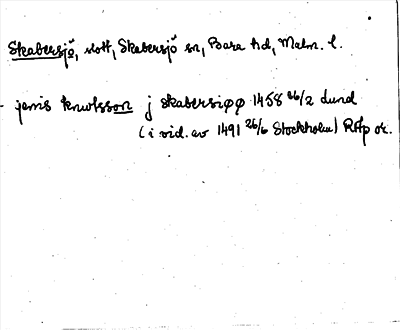 Skabersjö, slott, Skabersjö sn, Bara hd, Malm. l.
- jenis knutsson j skabersiøø 1458 26/2 Lund
(i vid. av 1491 26/6 Stockholm) RAp or.